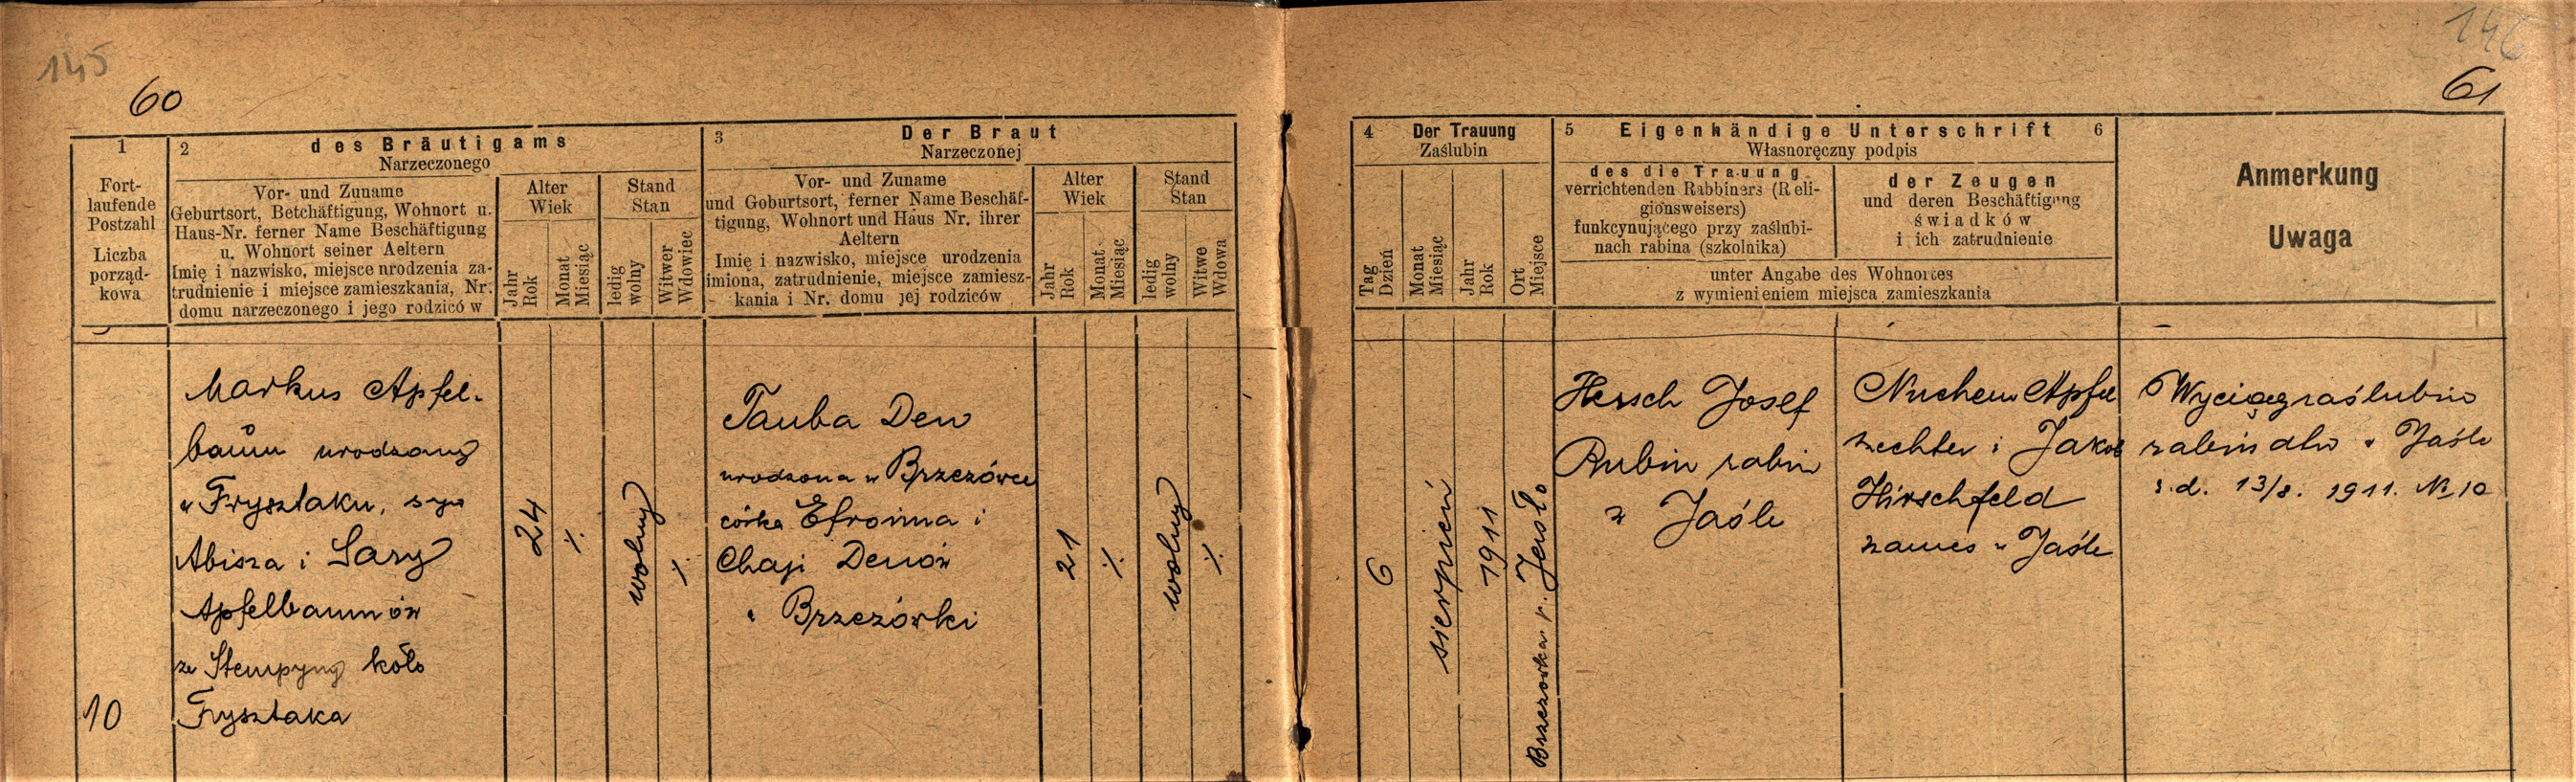 145
60
1
Fort-
laufende
Postzahl
Liczba
porząd-
kowa
2
des Bräutigams
Narzeczonego
Vor- und Zuname
Geburtsort, Betchäftigung, Wohnort u.
Haus-Nr. ferner Name Beschäftigung
u. Wohnort seiner Aeltern
Imię i nazwisko, miejsce nrodzenia za-
trudnienie i miejsce zamieszkania, Nr.
domu narzeczonego i jego rodziców
Alter
Wiek
Jahr
Rok
Monat
Miesiąc
Stand
Stan
ledig
wolny
Witwer
Wdowiec
3
Der Braut
Narzeczonej
Vor- und Zuname
und Goburtsort, ferner Name Beschäf-
tigung, Wohnort und Haus Nr. ihrer
Aeltern
Imię i nazwisko, miejsce urodzenia
imiona, zatrudnienie, miejsce zamiesz-
kania i Nr. domu jej rodziców
Alter
Wiek
Jahr
Rok
Monat
Miesiąc
Stand
Stan
ledig
wolny
Witwe
Wdowa
10
Markus Apfel-
baum urodzony
w Frysztaku, syn
Abisza i Sary
Apfelbaumów
ze Stempyny koło
Frysztaka
24
./.
wolny
./.
Tauba Den
urodzona w Brzezówce
córka Efroima i
Chaji Denów
z Brzezówki
21
./.
wolny
./.
146
61
4
Der Trauung
Zaślubin
Tag
Dzień
Monat
Miesiąc
Jahr
Rok
Ort
Miejsce
5
Eigenhändige Unterschrift
6
Własnoręczny podpis
des die Trauung
verrichtenden Rabbiners (Reli-
gionsweisers)
funkcynującego przy zaślubi-
nach rabina (szkolnika)
der Zeugen
und deren Beschäftigung
świadków
i ich zatrudnienie
unter Angabe des Wohnortes
z wymienieniem miejsca zamieszkania
Anmerkung
Uwaga
6
sierpień
1911
Brzezówka p. Jasło
Hersch Josef
Rubin rabin
w Jaśle
Nuchem Apfel
szechter i Jakob
Hirschfeld
zamies w Jaśle
Wyciąg zaślubin
rabinatu w Jaśle
z.d. 13/8. 1911. № 10